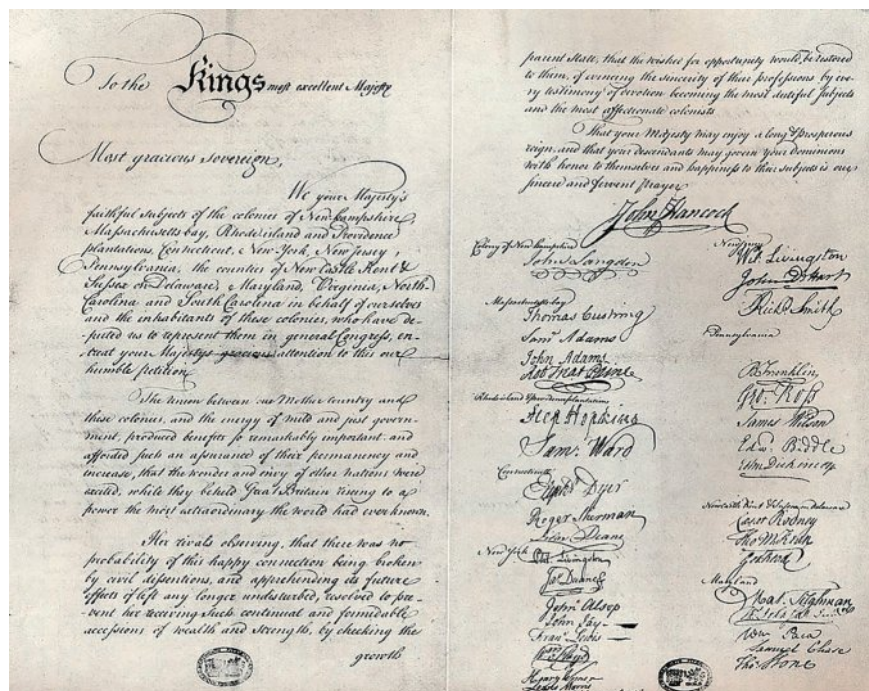 To the Kings most excellent Majesty
Most gracious sovereign,
We your Majesty's
faithful subjects of the colonies of New-hampshire,
Massachusetts bay, Rhode island and Providence
plantations, Connecticut, New-York, New Jersey,
Pennsylvania, the counties of New Castle Kent &
Sussex on Delaware, Maryland, Virginia, North-
Carolina and South Carolina in behalf of ourselves
and the inhabitants of these colonies, who have de-
puted us to represent them in general Congress, en-
treat your Majestys gracious attention to this our
humble petition.
The union between our Mother Country and
these colonies, and the energy of mild and just govern-
ment, produced benefits so remarkably important and
afforded such an assurance of their permanency and
increase, that the wonder and envy of other nations were
excited, while they beheld Great Britain rising to a
power the most extraordinary the world had ever known.
Her rivals observing, that there was no
probability of this happy connection being broken
by civil dissentions, and apprehending its future
effects if left any longer undisturbed, resolved to pre-
vent her receiving such continual and formidable
accessions of wealth and strength, by checking the
growth
parent State, that the wished for opportunity would be restored
to them, of evincing the sincerity of their professions by eve-
ry testimony of devotion becoming the most dutiful subjects
and the most affectionate colonists
That your Majesty may enjoy a long & prosperous
reign, and that your descendants may govern your dominions
with honor to themselves and happiness to their subjects is our
sincere and fervent prayer
John Hancock
Colony of New hampshire
John Langdon
Massachusetts bay
Thomas Cushing
Saml Adams
John Adams
Robt Treat Paine
Rhode island & providence plantations
Step Hopkins
Sam: Ward
Connecticut
Elipht Dyer
Roger Sherman
Silas Deane
New York
Phil. Livingston
Jas Duane
John Alsop
John Jay
Frans Lewis
Wm Floyd
Henry Wisner
Lewis Morris
New Jersey
Wil: Livingston
John D Hart
Richd Smith
Pennsylvania
B Franklin
Geo: Ross
James Wilson
Edwd Biddle
John Dickinson
New Castle Kent & Sussex on delaware
Caesar Rodney
Tho M:Kean
Geo Read
Maryland
Mat. Tilghman
Wm Paca
Samuel Chase
Thos Stone